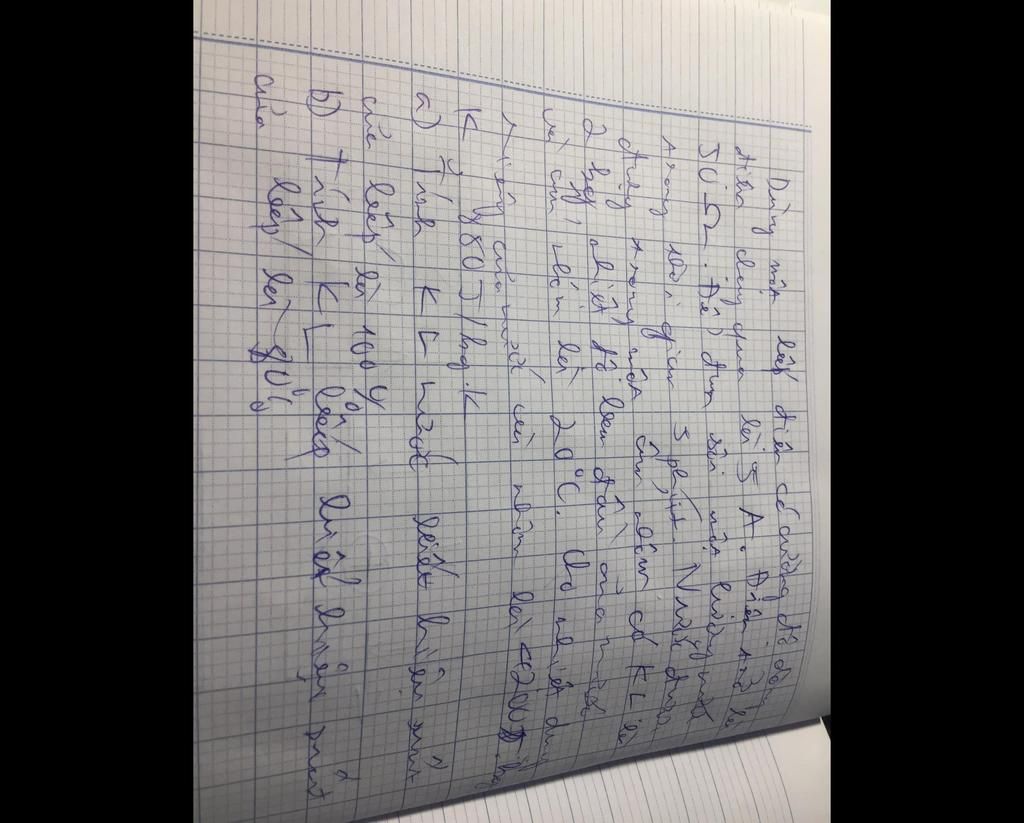 Dùng một bếp điện có cường độ dòng
điện chạy qua là 5 A. Điện trở là
50Ω. Để đun sôi một lượng nước
trong thời gian 5 phút. Nước được
đựng trong một ấm nhôm có KL là
2 kg, nhiệt độ ban đầu của nước
và ấm nhôm là 20°C. Cho nhiệt dung
riêng của nước và nhôm là 4200J/kg.
K, 880J/kg.K
a) Tính KL nước biết hiệu suất
của bếp là 100%
b) Tính KL biết hiệu suất
của bếp là 80%